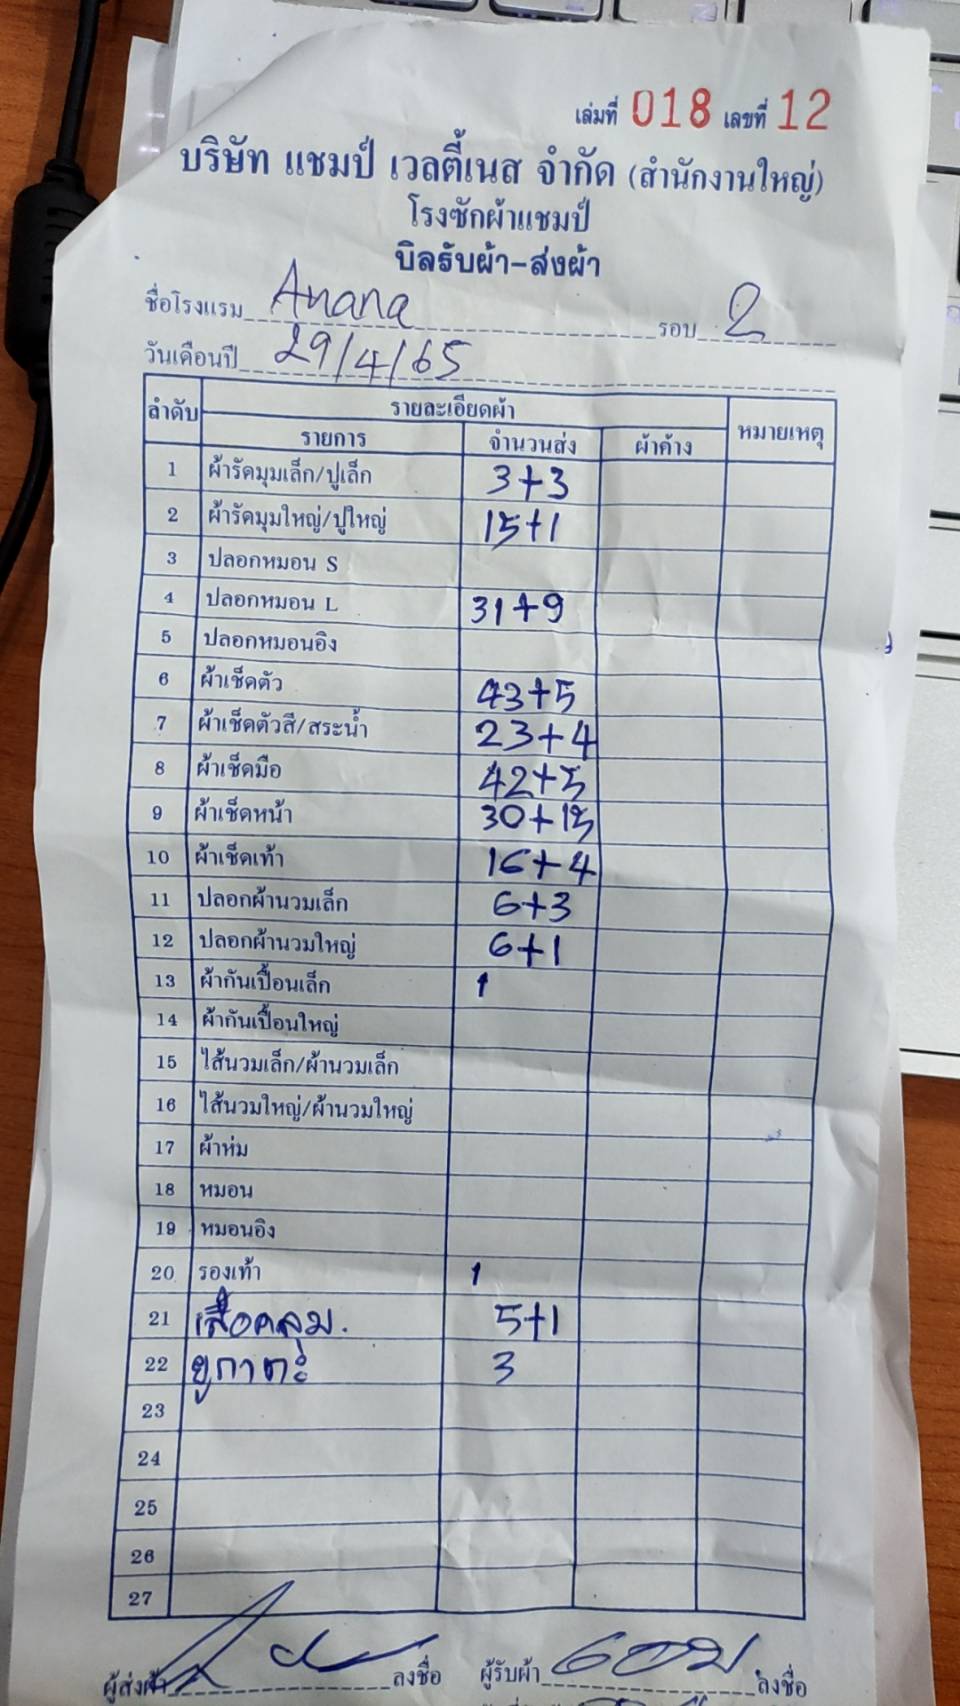 เล่มที่ 018 เลขที่ 12
บริษัท แชมป์ เวลตี้เนส จำกัด (สำนักงานใหญ่)
โรงซักผ้าแชมป์
บิลรับผ้า-ส่งผ้า
ชื่อโรงแรม Anana รอบ 2
วันเดือนปี 29/4/65
ลำดับ รายละเอียดผ้า หมายเหตุ
รายการ จำนวนส่ง ผ้าค้าง
1 ผ้ารัดมุมเล็ก/ปูเล็ก 3+3
2 ผ้ารัดมุมใหญ่/ปูใหญ่ 15+1
3 ปลอกหมอน S
4 ปลอกหมอน L 31+9
5 ปลอกหมอนอิง
6 ผ้าเช็ดตัว 43+5
7 ผ้าเช็ดตัวสี/สระน้ำ 23+4
8 ผ้าเช็ดมือ 42+5
9 ผ้าเช็ดหน้า 30+15
10 ผ้าเช็ดเท้า 16+4
11 ปลอกผ้านวมเล็ก 6+3
12 ปลอกผ้านวมใหญ่ 6+1
13 ผ้ากันเปื้อนเล็ก 1
14 ผ้ากันเปื้อนใหญ่
15 ไส้นวมเล็ก/ผ้านวมเล็ก
16 ไส้นวมใหญ่/ผ้านวมใหญ่
17 ผ้าห่ม
18 หมอน
19 หมอนอิง
20 รองเท้า 1
21 เสื้อคลุม. 5+1
22 ยูกาตะ 3
23
24
25
26
27
ผู้ส่งผ้า ลงชื่อ ผู้รับผ้า ลงชื่อ